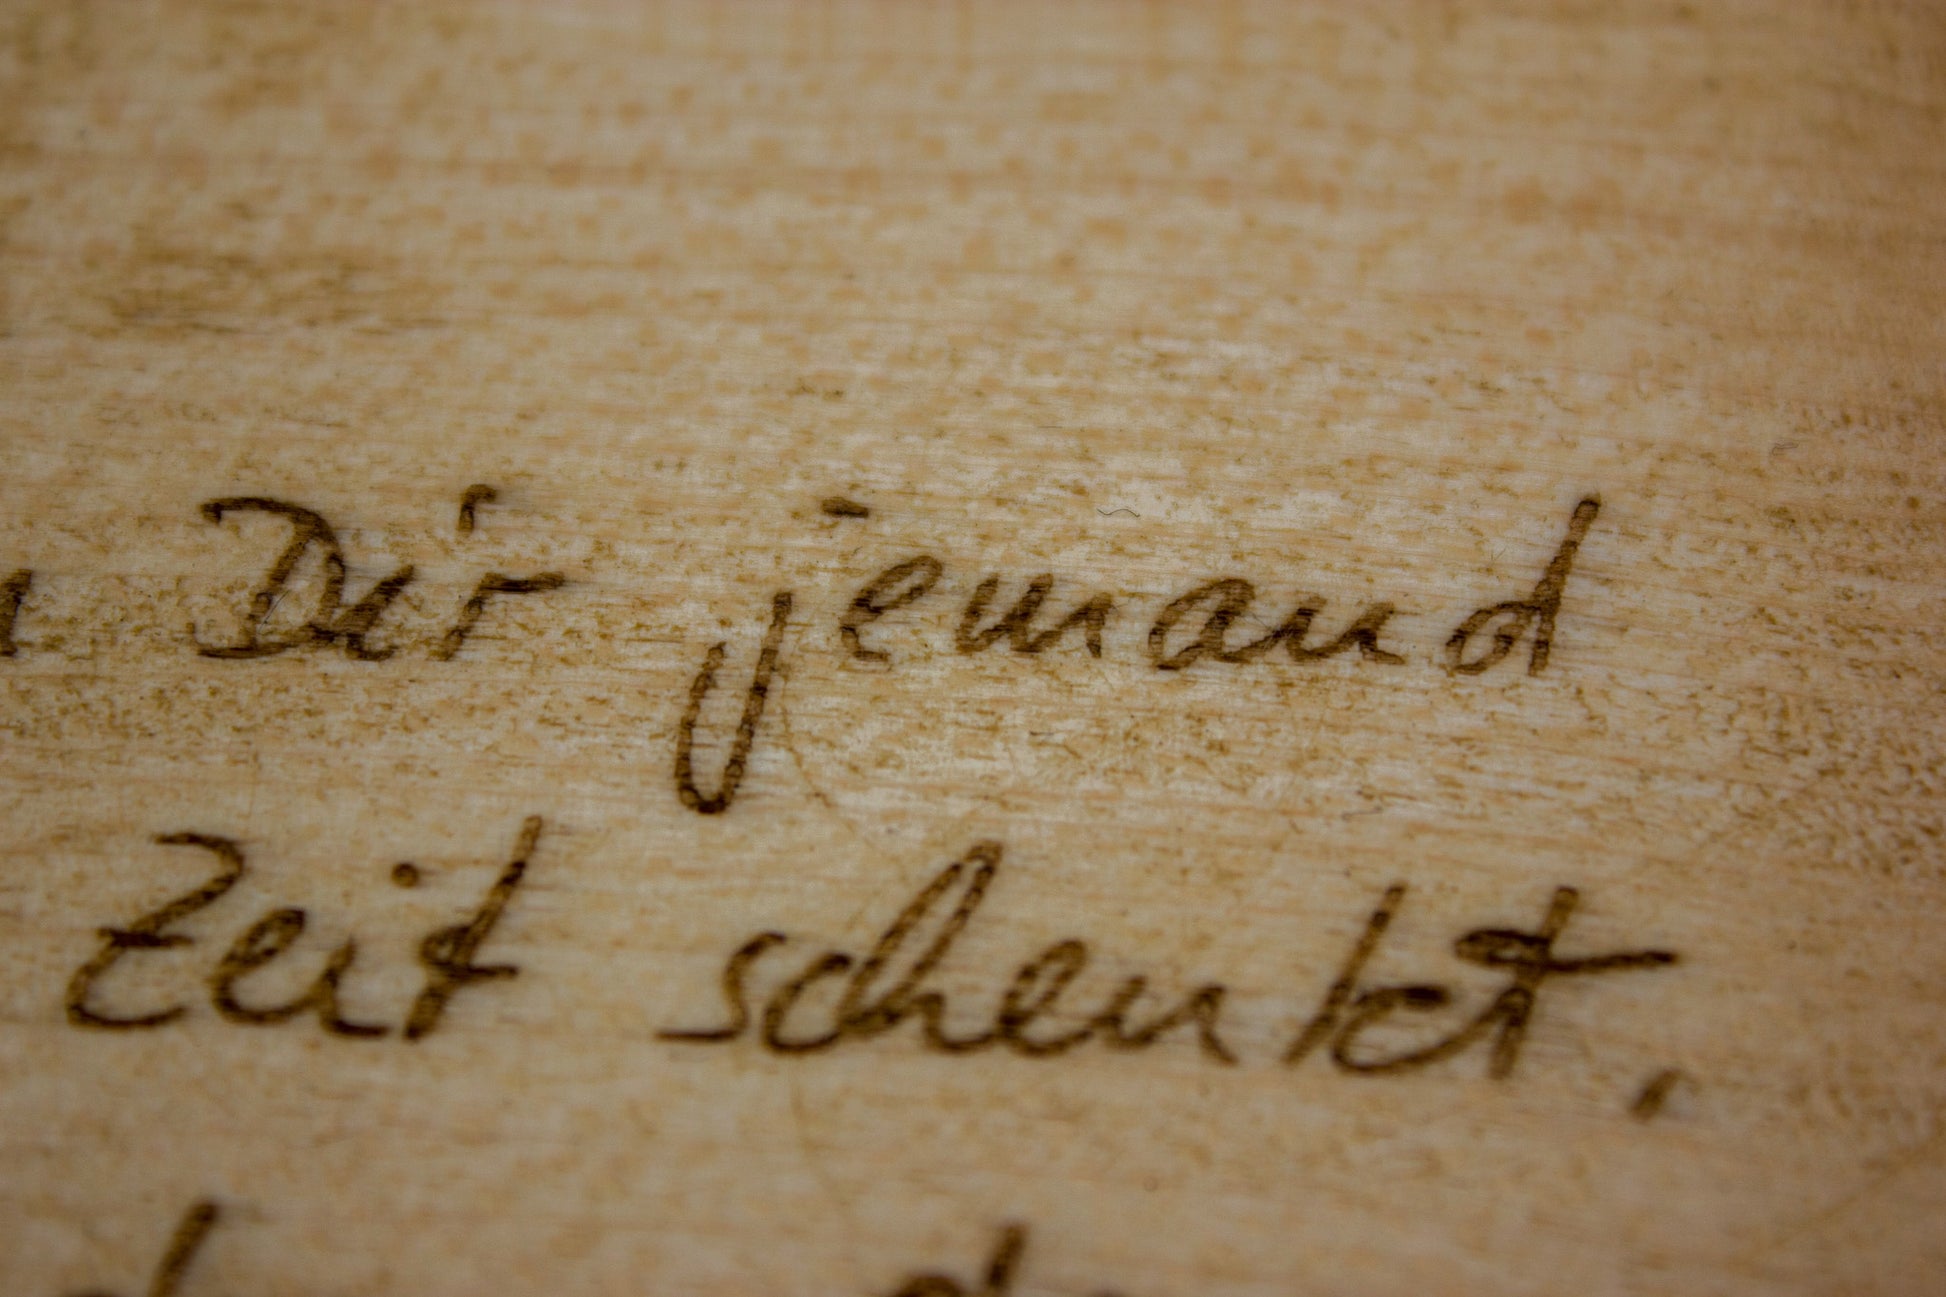 Dir jemand
Zeit schenkt,